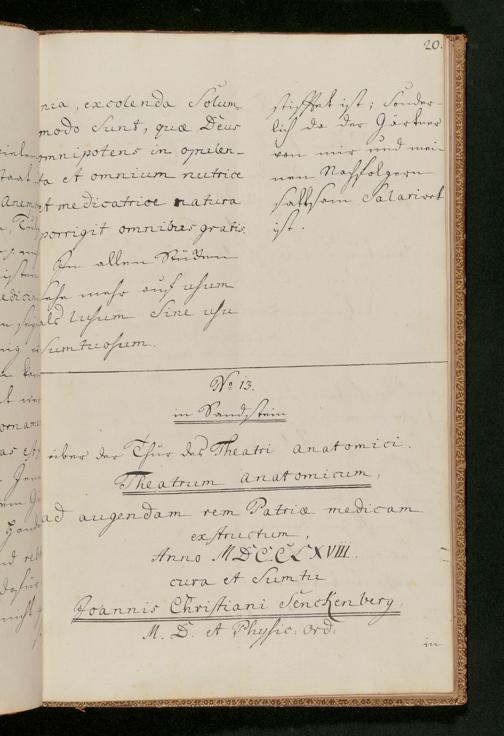 20.
nia, excolenda Solum
modo Sunt, quæ Deus
omnipotens in opulen-
ta et omnium nutrice
et medicatrice natura
porrigit omnibus gratis.
In allen Stücken
sehe mehr auf usum
als lusum sine usu
Sumtuosum.
stifftet ist; Sonder-
lich da der Gärtner
von mir und mei
nen Nachfolgern
sattsam Salarirt
ist.
No 13.
in Sandstein
über der Thür des Theatri anatomici.
Theatrum anatomicum,
ad augendam rem Patriæ medicam
exstructum,
Anno MDCCLXVIII.
cura et Sumtu
Joannis Christiani Senckenberg
M. D. et Physic: Ord:
in